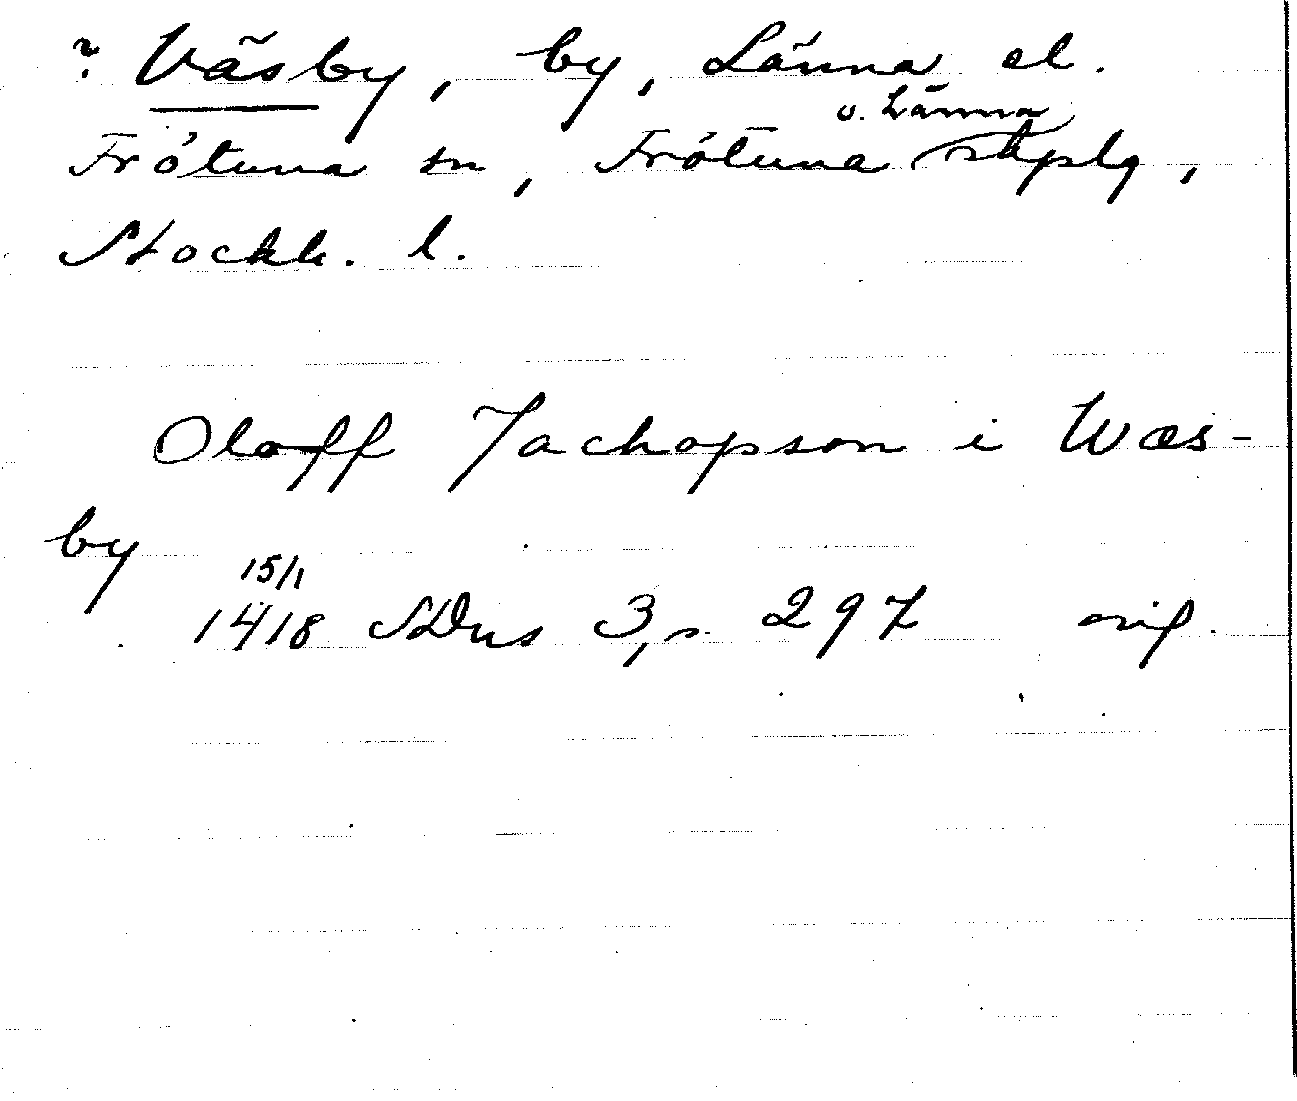 ? Väsby, by, Länna el.
o. Länna
Frötuna sn, Frötuna skplg,
Stockh. l.
Oloff Jachopson i Wæs-
by
15/1
1418 SDns 3, s. 297 orig.